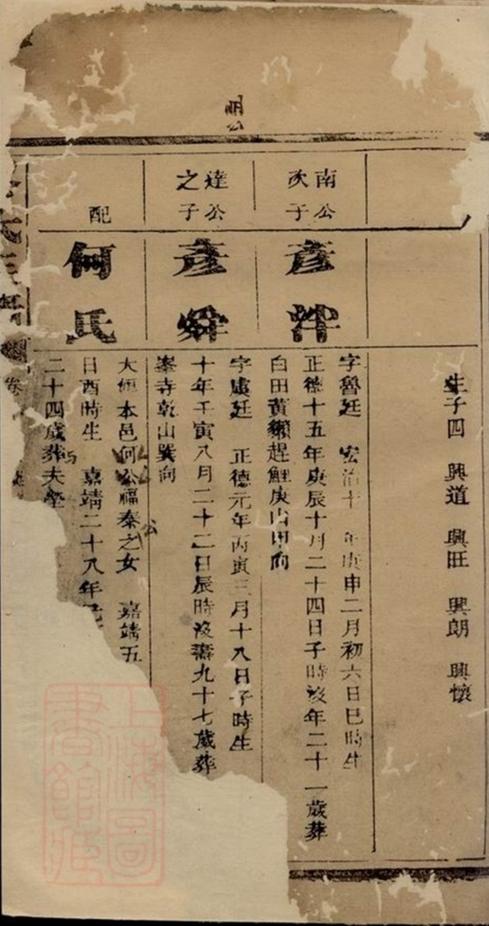 生子四 興道 興旺 興朗 興懷
南公次子
彥泮
字魯廷 宏治十 年庚申二月初六日巳時生
正德十五年庚辰十月二十四日子時沒年二十一歲葬
白田黃獺趕鯉庚山甲向
達公之子
彥舜
字虞廷 正德元年丙寅三月十八日子時生
十年壬寅八月二十二日辰時沒壽九十七歲葬
峯寺乾山巽向
配
何氏
大恒本邑何公福秦之女 嘉靖五
日酉時生 嘉靖二十八年
二十四歲葬夫塋